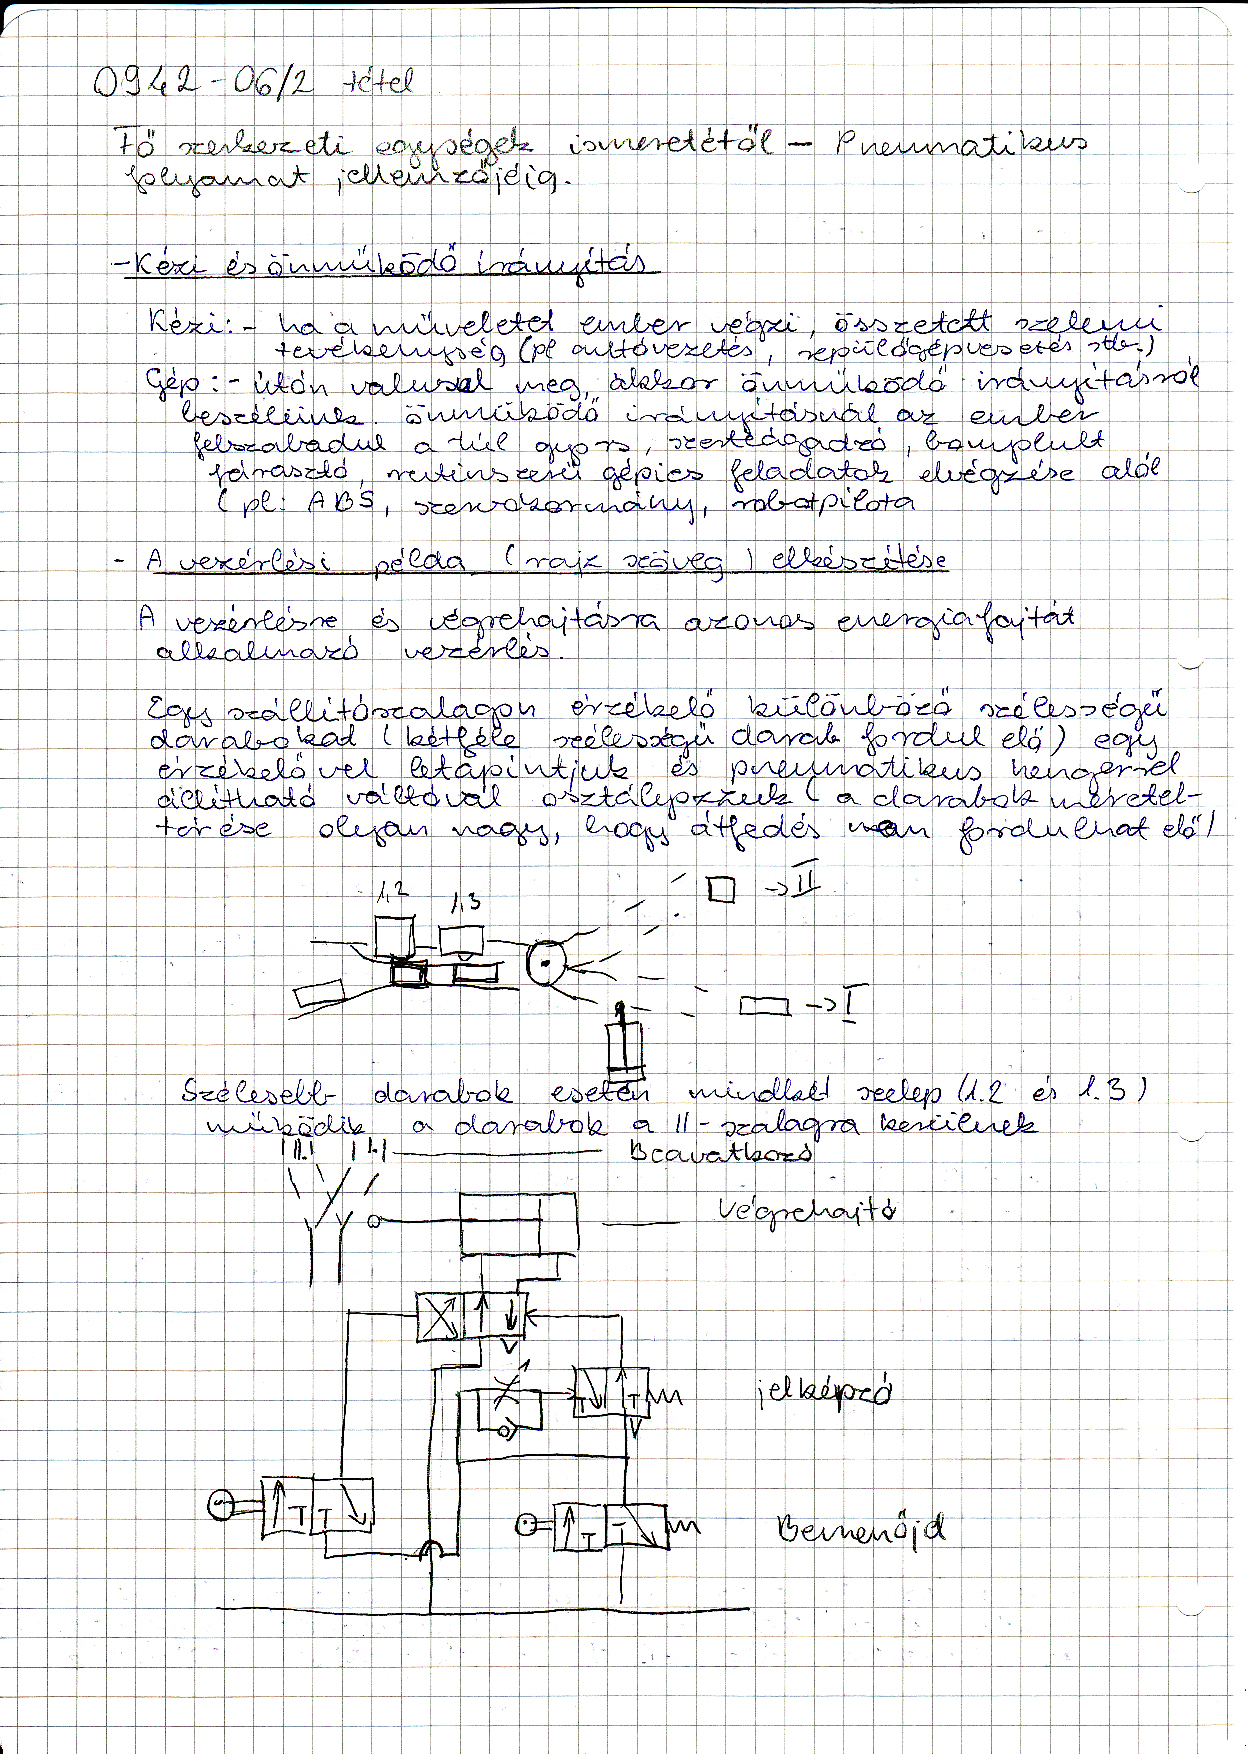 0942-06/2 tétel
Fő szerkezeti egységek ismeretétől - Pneumatikus
folyamat jellemzőjéig.
- Kézi és önműködő irányítás
Kézi: - ha a műveletet ember végzi, összetett szellemi
tevékenység (pl autóvezetés, repülőgépvezetés stb.)
Gép: - útón valusul meg, akkor önműködő irányításról
beszélünk. önműködő irányításnál az ember
felszabadul a túl gyors, szerteágadzó, bonyolult
fárasztó, rutinszerű gépies feladatok elvégzése alól
( pl: ABS, szervokormány, robotpilota
- A vezérlési példa ( rajz szöveg ) elkészítése
A vezérlésre és végrehajtásra azonos energiafajtát
alkalmazó vezérlés.
Egy szállítószalagon érzékelő különböző szélességű
darabokat ( kétféle szélességű darab fordul elő ) egy
érzékelővel letapintjuk és pneumatikus hengerrel
állítható váltóval osztályozzuk ( a darabok méretel-
térése olyan nagy, hogy átfedés nem fordulhat elő )
1,2
1,3
-> II
-> I
Szélesebb darabok esetén mindkét szelep (1.2 és 1.3)
működik a darabok a II - szalagra kerülnek
Beavatkozó
Végrehajtó
jelképző
Bemenőjel